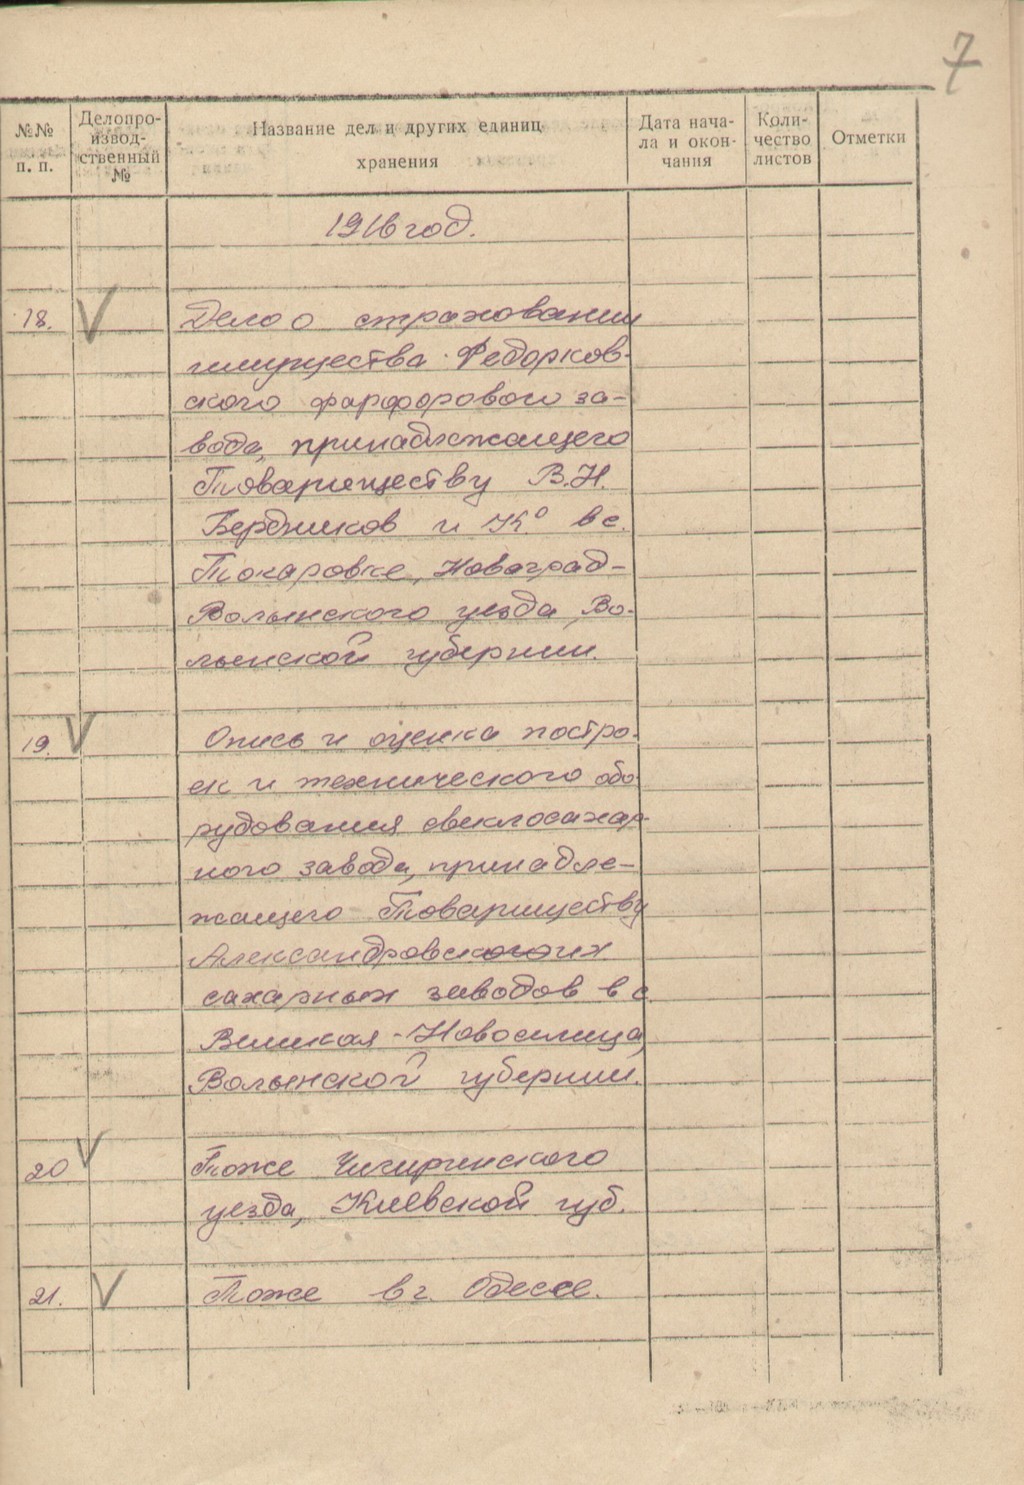 7
№№ п. п.
Делопро-
извод-
ственный
№
Название дел и других единиц
хранения
Дата нача-
ла и окон-
чания
Коли-
чество
листов
Отметки
1916 год.
18. V Дело о страховании
имущества Федорков-
ского фарфорового за-
вода, принадлежащего
Товариществу В.Н.
Бердников и Ко. в с.
Токаровке, Новоград-
Волынского уезда, Во-
лынской губернии.
19. V Опись и оценка постро-
ек и технического обо-
рудования свеклосахар-
ного завода, принадле-
жащего Товариществу
Александровскогоих
сахарных заводов в с.
Великая-Новоселица,
Волынской губернии.
20 V Тоже Чигиринского
уезда, Киевской губ.
21. V Тоже в г. Одессе.